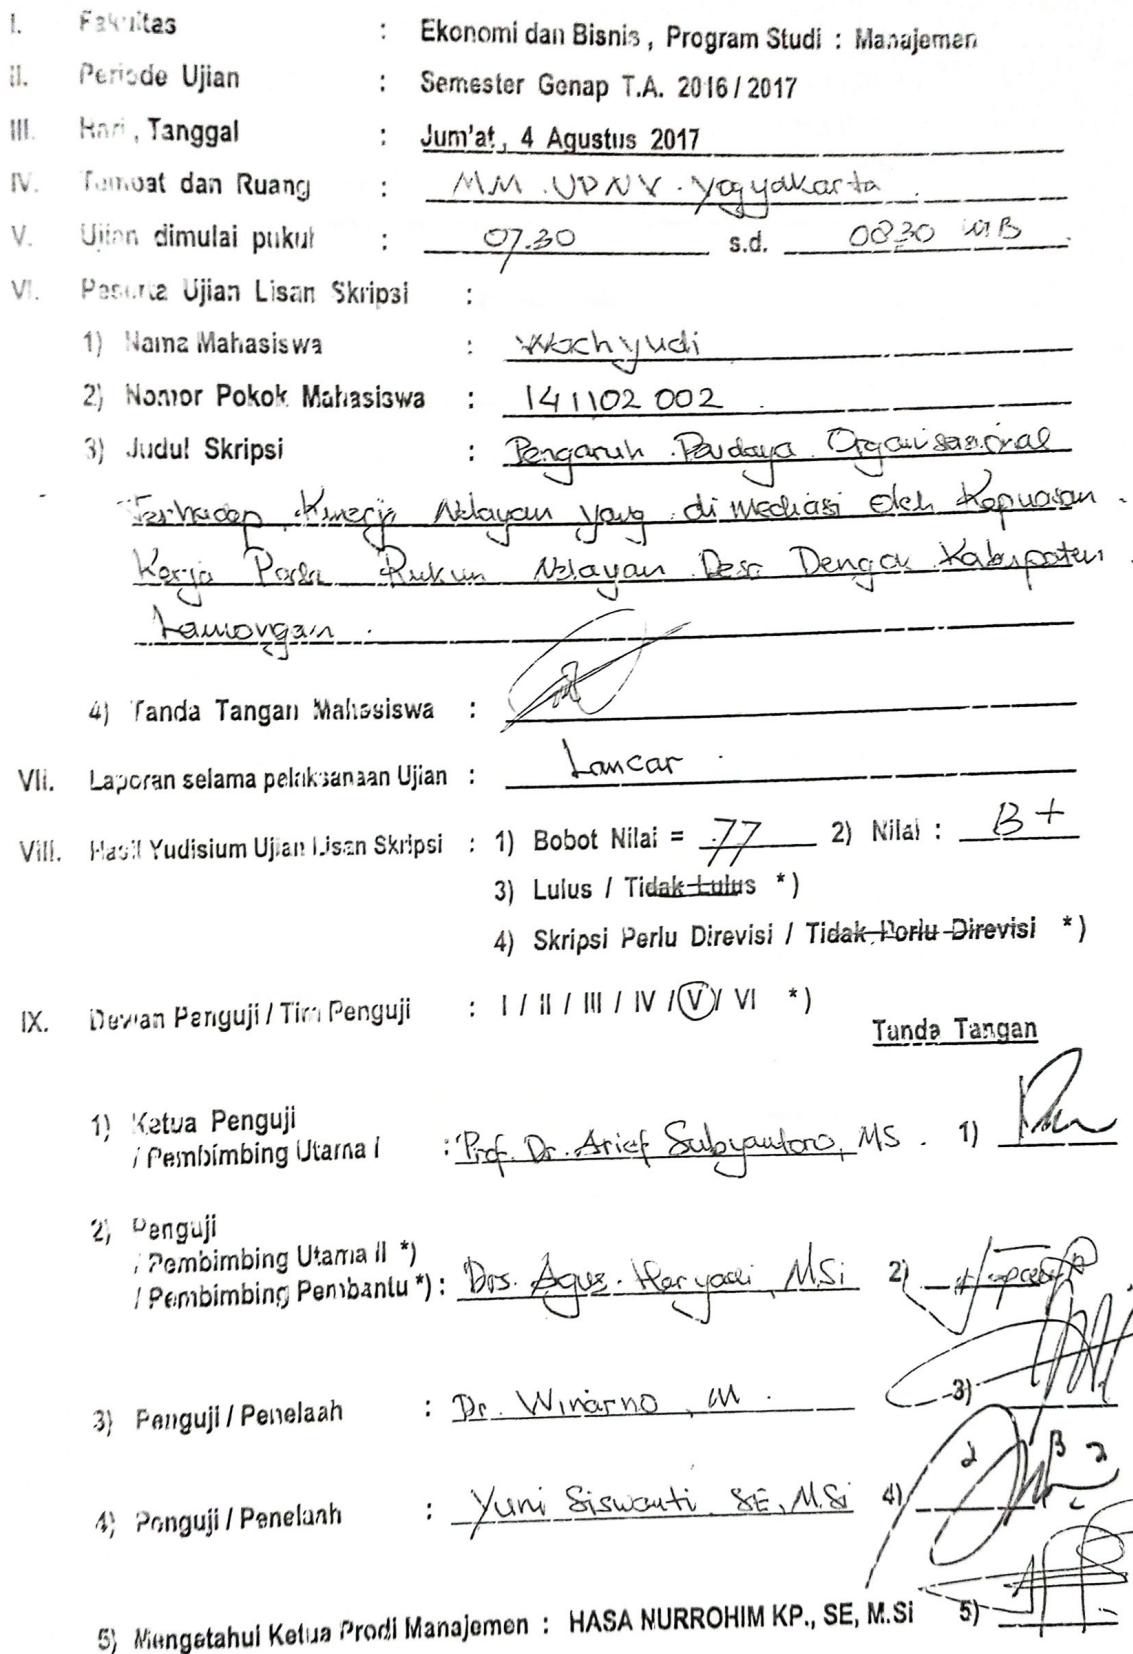 I. Fakultas : Ekonomi dan Bisnis , Program Studi : Manajemen
II. Periode Ujian : Semester Genap T.A. 2016 / 2017
III. Hari , Tanggal : Jum'at , 4 Agustus 2017
IV. Tempat dan Ruang : MM . UPNV . Yogyakarta
V. Ujian dimulai pukul : 07.30 s.d. 08.30 WIB
VI. Peserta Ujian Lisan Skripsi :
1) Nama Mahasiswa : Wachyudi
2) Nomor Pokok Mahasiswa : 141102 002
3) Judul Skripsi : Pengaruh Budaya Organisasional
Terhadap Kinerja Nelayan yang di mediasi Oleh Kepuasan
Kerja Pada Rukun Nelayan Desa Dengok Kabupaten
Lamongan .
4) Tanda Tangan Mahasiswa :
VII. Laporan selama pelaksanaan Ujian : Lancar .
VIII. Hasil Yudisium Ujian Lisan Skripsi : 1) Bobot Nilai = 77 2) Nilai : B+
3) Lulus / Tidak Lulus *)
4) Skripsi Perlu Direvisi / Tidak Perlu Direvisi *)
IX. Dewan Penguji / Tim Penguji : I / II / III / IV / V / VI *)
Tanda Tangan
1) Ketua Penguji
/ Pembimbing Utama I : Prof. Dr. Arief Subyantoro, MS . 1)
2) Penguji
/ Pembimbing Utama II *)
/ Pembimbing Pembantu *) : Drs. Agus Haryadi, M.Si 2)
3) Penguji / Penelaah : Dr. Winarno , 3)
4) Penguji / Penelaah : Yuni Siswanti, SE, M.Si 4)
5) Mengetahui Ketua Prodi Manajemen : HASA NURROHIM KP., SE, M.Si 5)